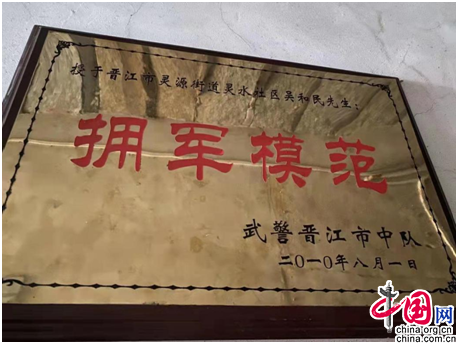 授于晋江市灵源街道灵水社区吴和民先生：
拥军模范
武警晋江市中队
二〇一〇年八月一日
中国网
china.org.cn
china.com.cn